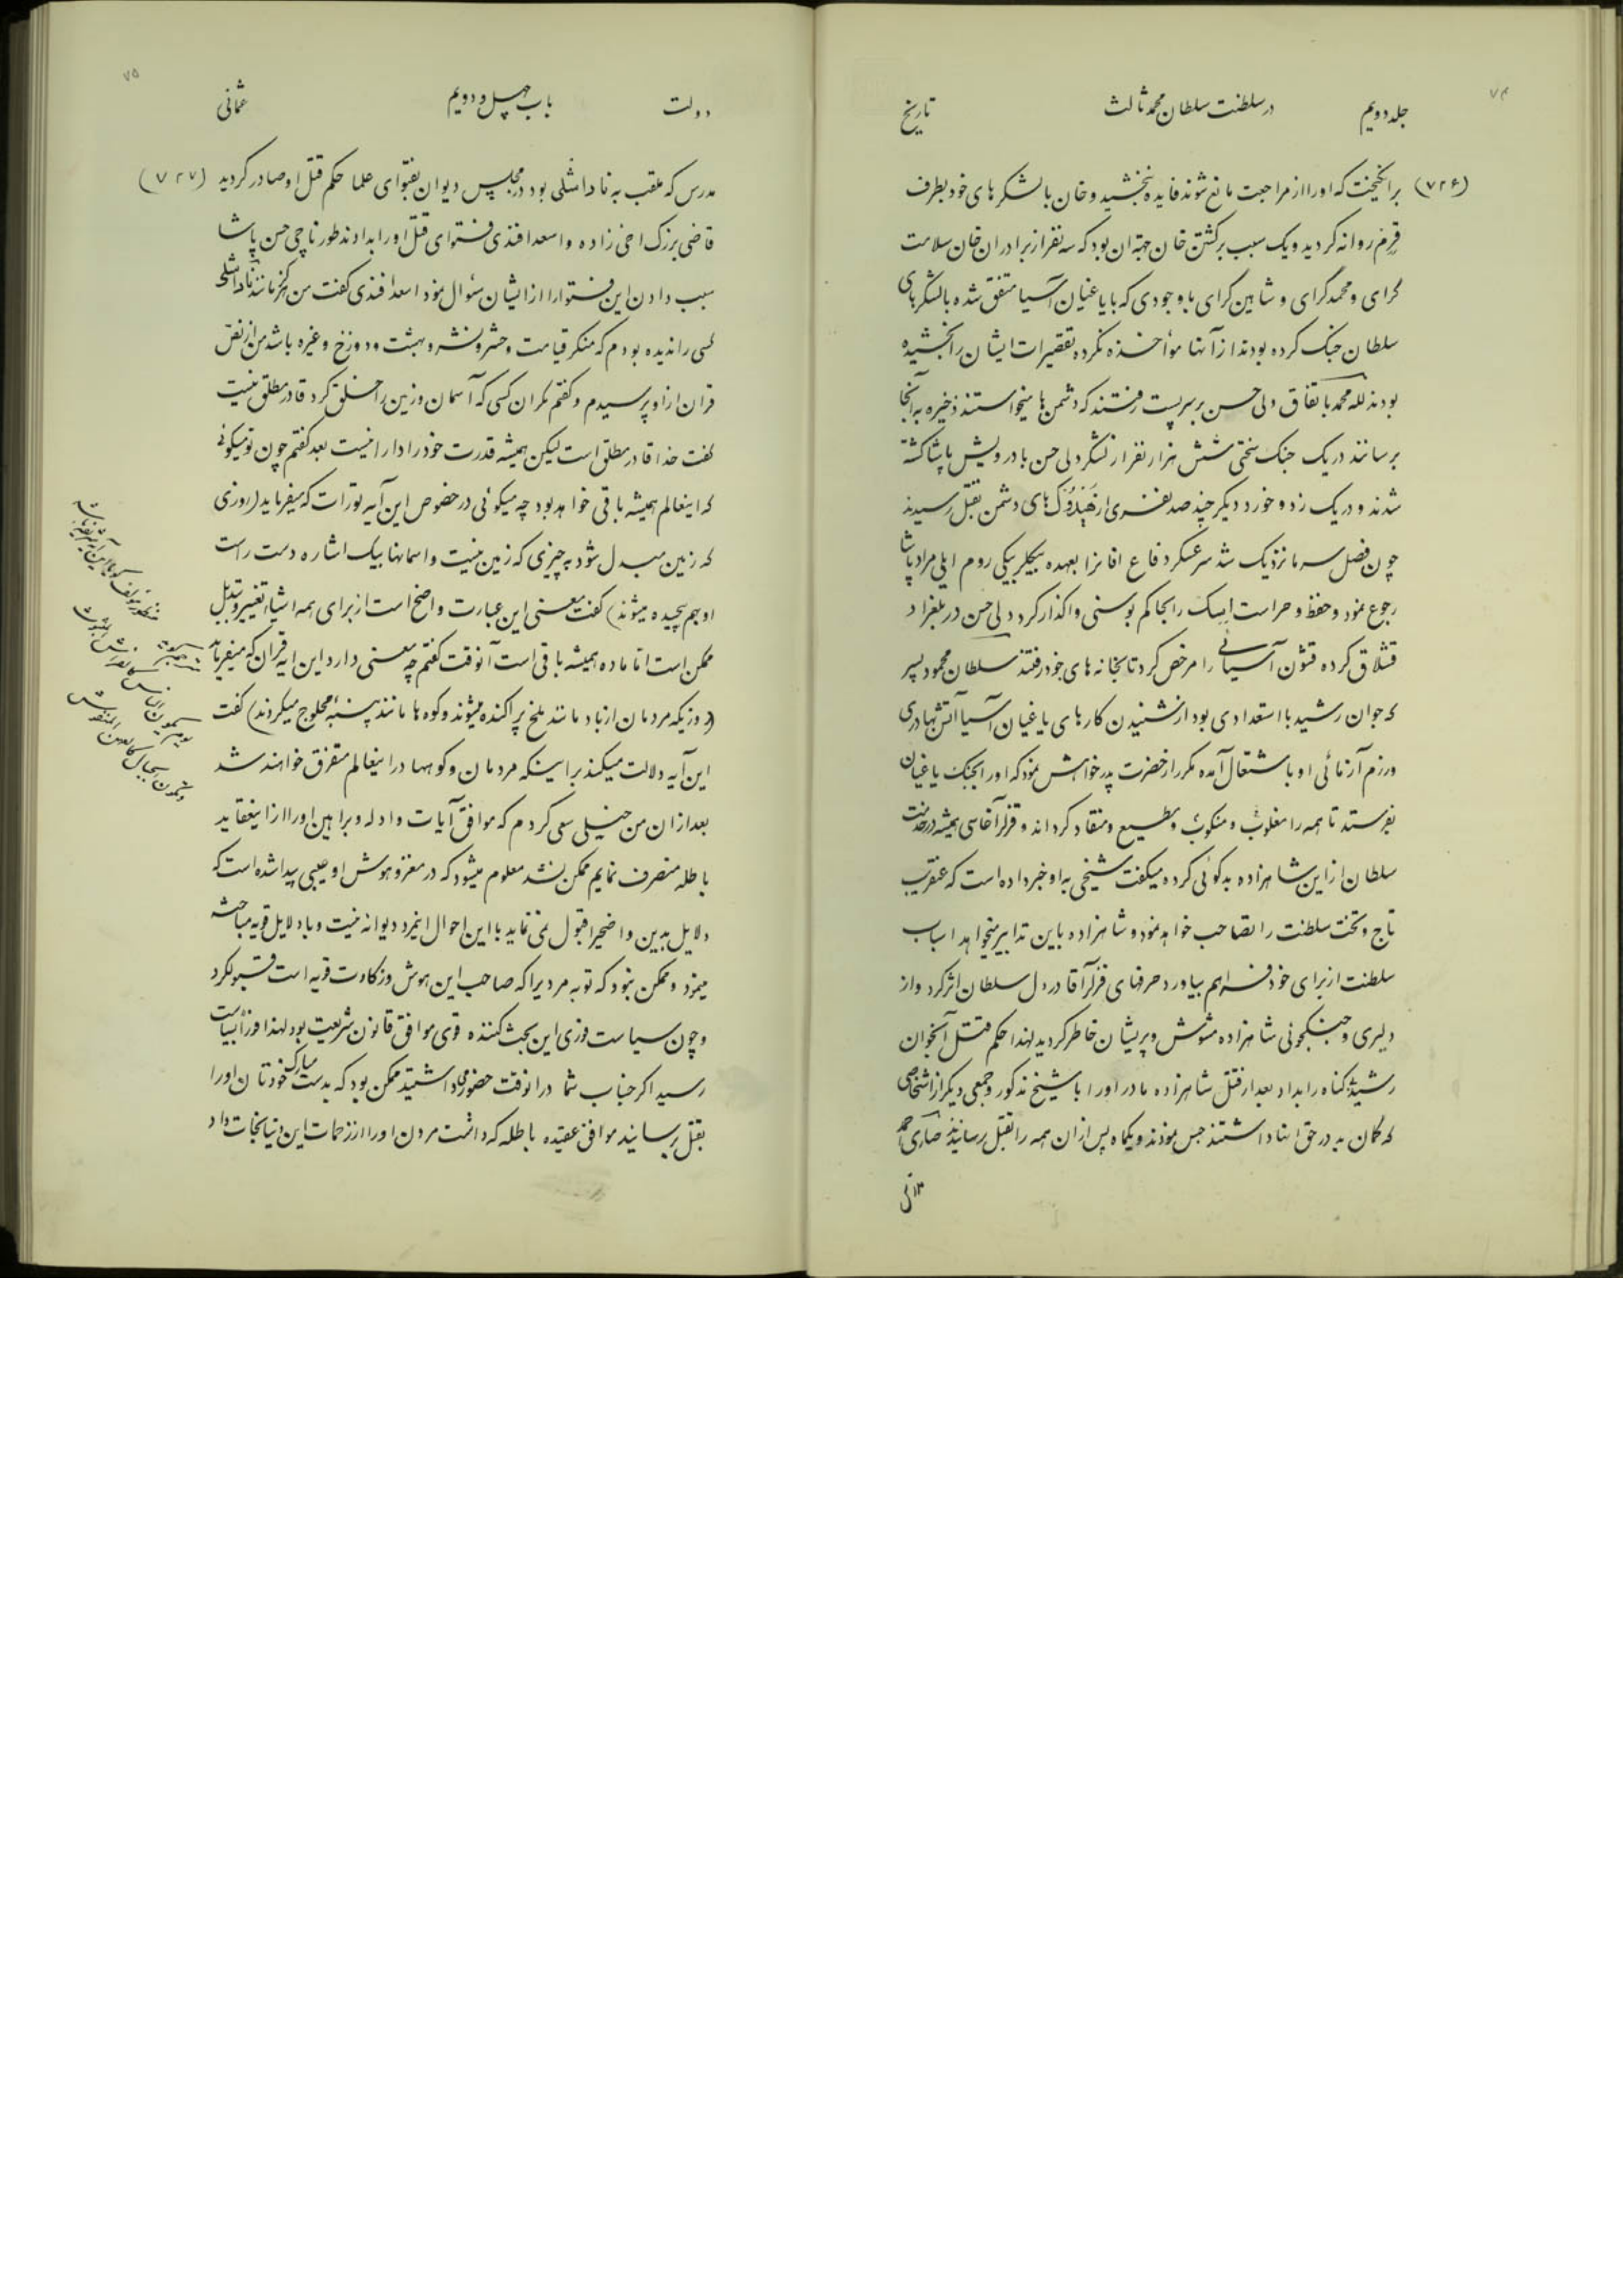 ۷۴
جلد دویم
در سلطنت سلطان محمد ثالث
تاریخ
(۷۲۶) برانکیخت که او را از مراجعت مانع شوند فایده نبخشید و خان با لشکرهای خود بطرف
قرم روانه کردید و یک سبب برکشتن خان جهة ان بود که سه نفر از برادران خان سلامت
گرای و محمد گرای و شاهین گرای با وجودی که با یاغیان آسیا متفق شده با لشکرهای
سلطان جنک کرده بودند از آنها مؤاخذه نکرده تقصیرات ایشان را بخشیده
بودند لله محمد باتفاق دلی حسن بر سر پست رفتند که دشمن ها میخواستند ذخیره به آنجا
برسانند در یک جنک سختی شش هزار نفر از لشکر دلی حسن با درویش پاشا کشته
شدند و در یک زد و خورد دیکر چند صد نفری از هیدوک های دشمن بقتل رسیدند
چون فصل سرما نزدیک شد سر عسکر دفاع افانرا بعهده بیکلربیکی روم ایلی مراد پاشا
رجوع نمود و حفظ و حراست ایسک را بحاکم بوسنی واکذار کرد دلی حسن در بلغراد
قشلاق کرده قشون آسیائی را مرخص کرد تا بخانه های خود رفتند سلطان محمود پسر
که جوان رشید با استعدادی بود از شنیدن کارهای یاغیان آسیا آتش بهادری
و رزم آزمائی او باشتعال آمده مکرر از حضرت پدر خواهش نمود که او را بجنک یاغیان
بفرستد تا همه را مغلوب و منکوب و مطیع و منقاد کرداند و قزلر آغاسی همیشه در خدمت
سلطان از این شاهزاده بدکوئی کرده میکفت شیخی به او خبر داده است که عنقریب
تاج و تخت سلطنت را تصاحب خواهد نمود و شاهزاده باین تدابیر میخواهد اسباب
سلطنت از برای خود فراهم بیاورد حرفهای قزلر آقا در دل سلطان اثر کرد و از
دلیری و جنکجوئی شاهزاده مشوش و پریشان خاطر کردید لهذا حکم قتل آنجوان
رشید بیکناه را بداد بعد از قتل شاهزاده مادر او را با شیخ مذکور و جمعی دیکر از اشخاصی
که کمان بد در حق انها داشتند حبس نمودند و یکماه پس از ان همه را بقتل رسانیدند صاری احمد
۷۵
دولت
باب چهل و دویم
عثمانی
مدرس که ملقب به ناداشلی بود در مجلس دیوان بفتوای علما حکم قتل او صادر کردید (۷۲۷)
قاضی بزرک اخی زاده و اسعد افندی فتوای قتل او را بدادند طورناچی حسن پاشا
سبب دادن این فتوا را از ایشان سئوال نمود اسعد افندی کفت من هرکز مانند ناداشلی
کسی را ندیده بودم که منکر قیامت و حشر و نشر و بهشت و دوزخ و غیره باشد من از نص
قران از او پرسیدم و کفتم مکر ان کسی که آسمان و زمین را خلق کرد قادر مطلق نیست
کفت خدا قادر مطلق است لیکن همیشه قدرت خود را دارا نیست بعد کفتم چون تو میکوئی
که اینعالم همیشه باقی خواهد بود چه میکوئی در خصوص این آیه تورات که میفرماید (روزی
که زمین مبدل شود به چیزی که زمین نیست و اسمانها بیک اشاره دست راست
او بهم پیچیده میشوند) کفت معنی این عبارت واضح است از برای همه اشیا تغییر و تبدیل
ممکن است اما ماده همیشه باقی است آنوقت کفتم چه معنی دارد این ایه قران که میفرماید
(روزیکه مردمان از باد مانند ملخ پراکنده میشوند و کوه ها مانند پنبه محلوج میکردند) کفت
این آیه دلالت میکند بر اینکه مردمان و کوهها در اینعالم متفرق خواهند شد
بعد از ان من خیلی سعی کردم که موافق آیات و ادله و براهین او را از اینعقاید
باطله منصرف نمایم ممکن نشد معلوم میشود که در مغز و هوش او عیبی پیدا شده است که
دلایل بدین واضحیرا قبول نمی نماید با این احوال اینمرد دیوانه نیست و با دلایل قویه مباحثه
مینمود و ممکن نبود که توبه مردیرا که صاحب این هوش و زکاوت قویه است قبول کرد
و چون سیاست فوری این بحث کننده قوی موافق قانون شریعت بود لهذا فوراً بسیاست
رسید اکر جناب شما در انوقت حضور می داشتید ممکن بود که بدست مبارک خودتان او را
بقتل برسانید موافق عقیده باطله که داشت مردن او را از زحمات این دنیا نجات داد
یوم یکون الناس کالفراش المبثوث
و تکون الجبال کالعهن المنفوش